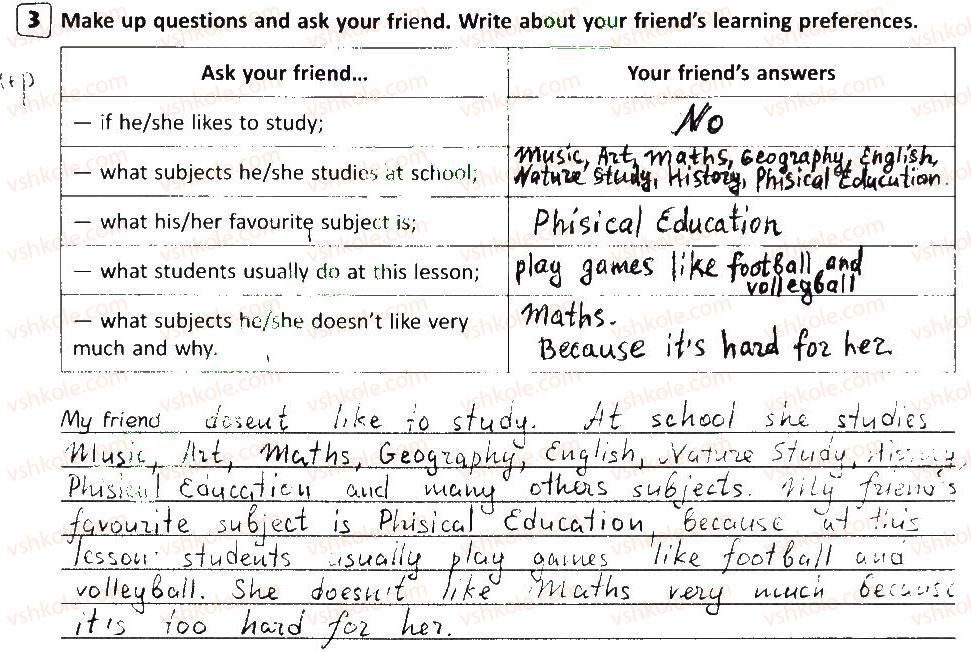 3 Make up questions and ask your friend. Write about your friend's learning preferences.
Ask your friend... Your friend's answers
— if he/she likes to study; No
— what subjects he/she studies at school; Music, Art, Maths, Geography, English,
Nature Study, History, Phisical Education.
— what his/her favourite subject is; Phisical Education
— what students usually do at this lesson; play games like football and
volleyball
— what subjects he/she doesn't like very Maths.
much and why. Because it's hard for her.
My friend dosent like to study. At school she studies
Music, Art, Maths, Geography, English, Nature Study, History,
Phisical Education and many others subjects. My friend's
favourite subject is Phisical Education, because at this
lesson students usually play games like football and
volleyball. She doesn't like Maths very much because
it's too hard for her.